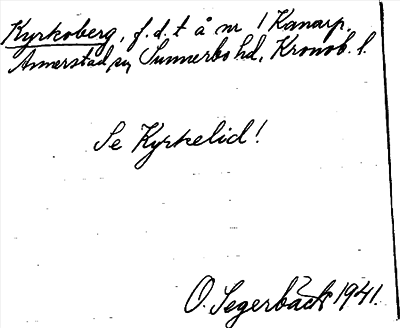 Kyrkoberg, f.d. t å nr 1 Kanarp.
Annerstad, sn, Sunnerbo hd, Kronob. l.
Se Kyrkelid!
O. Segerbäck 1941.